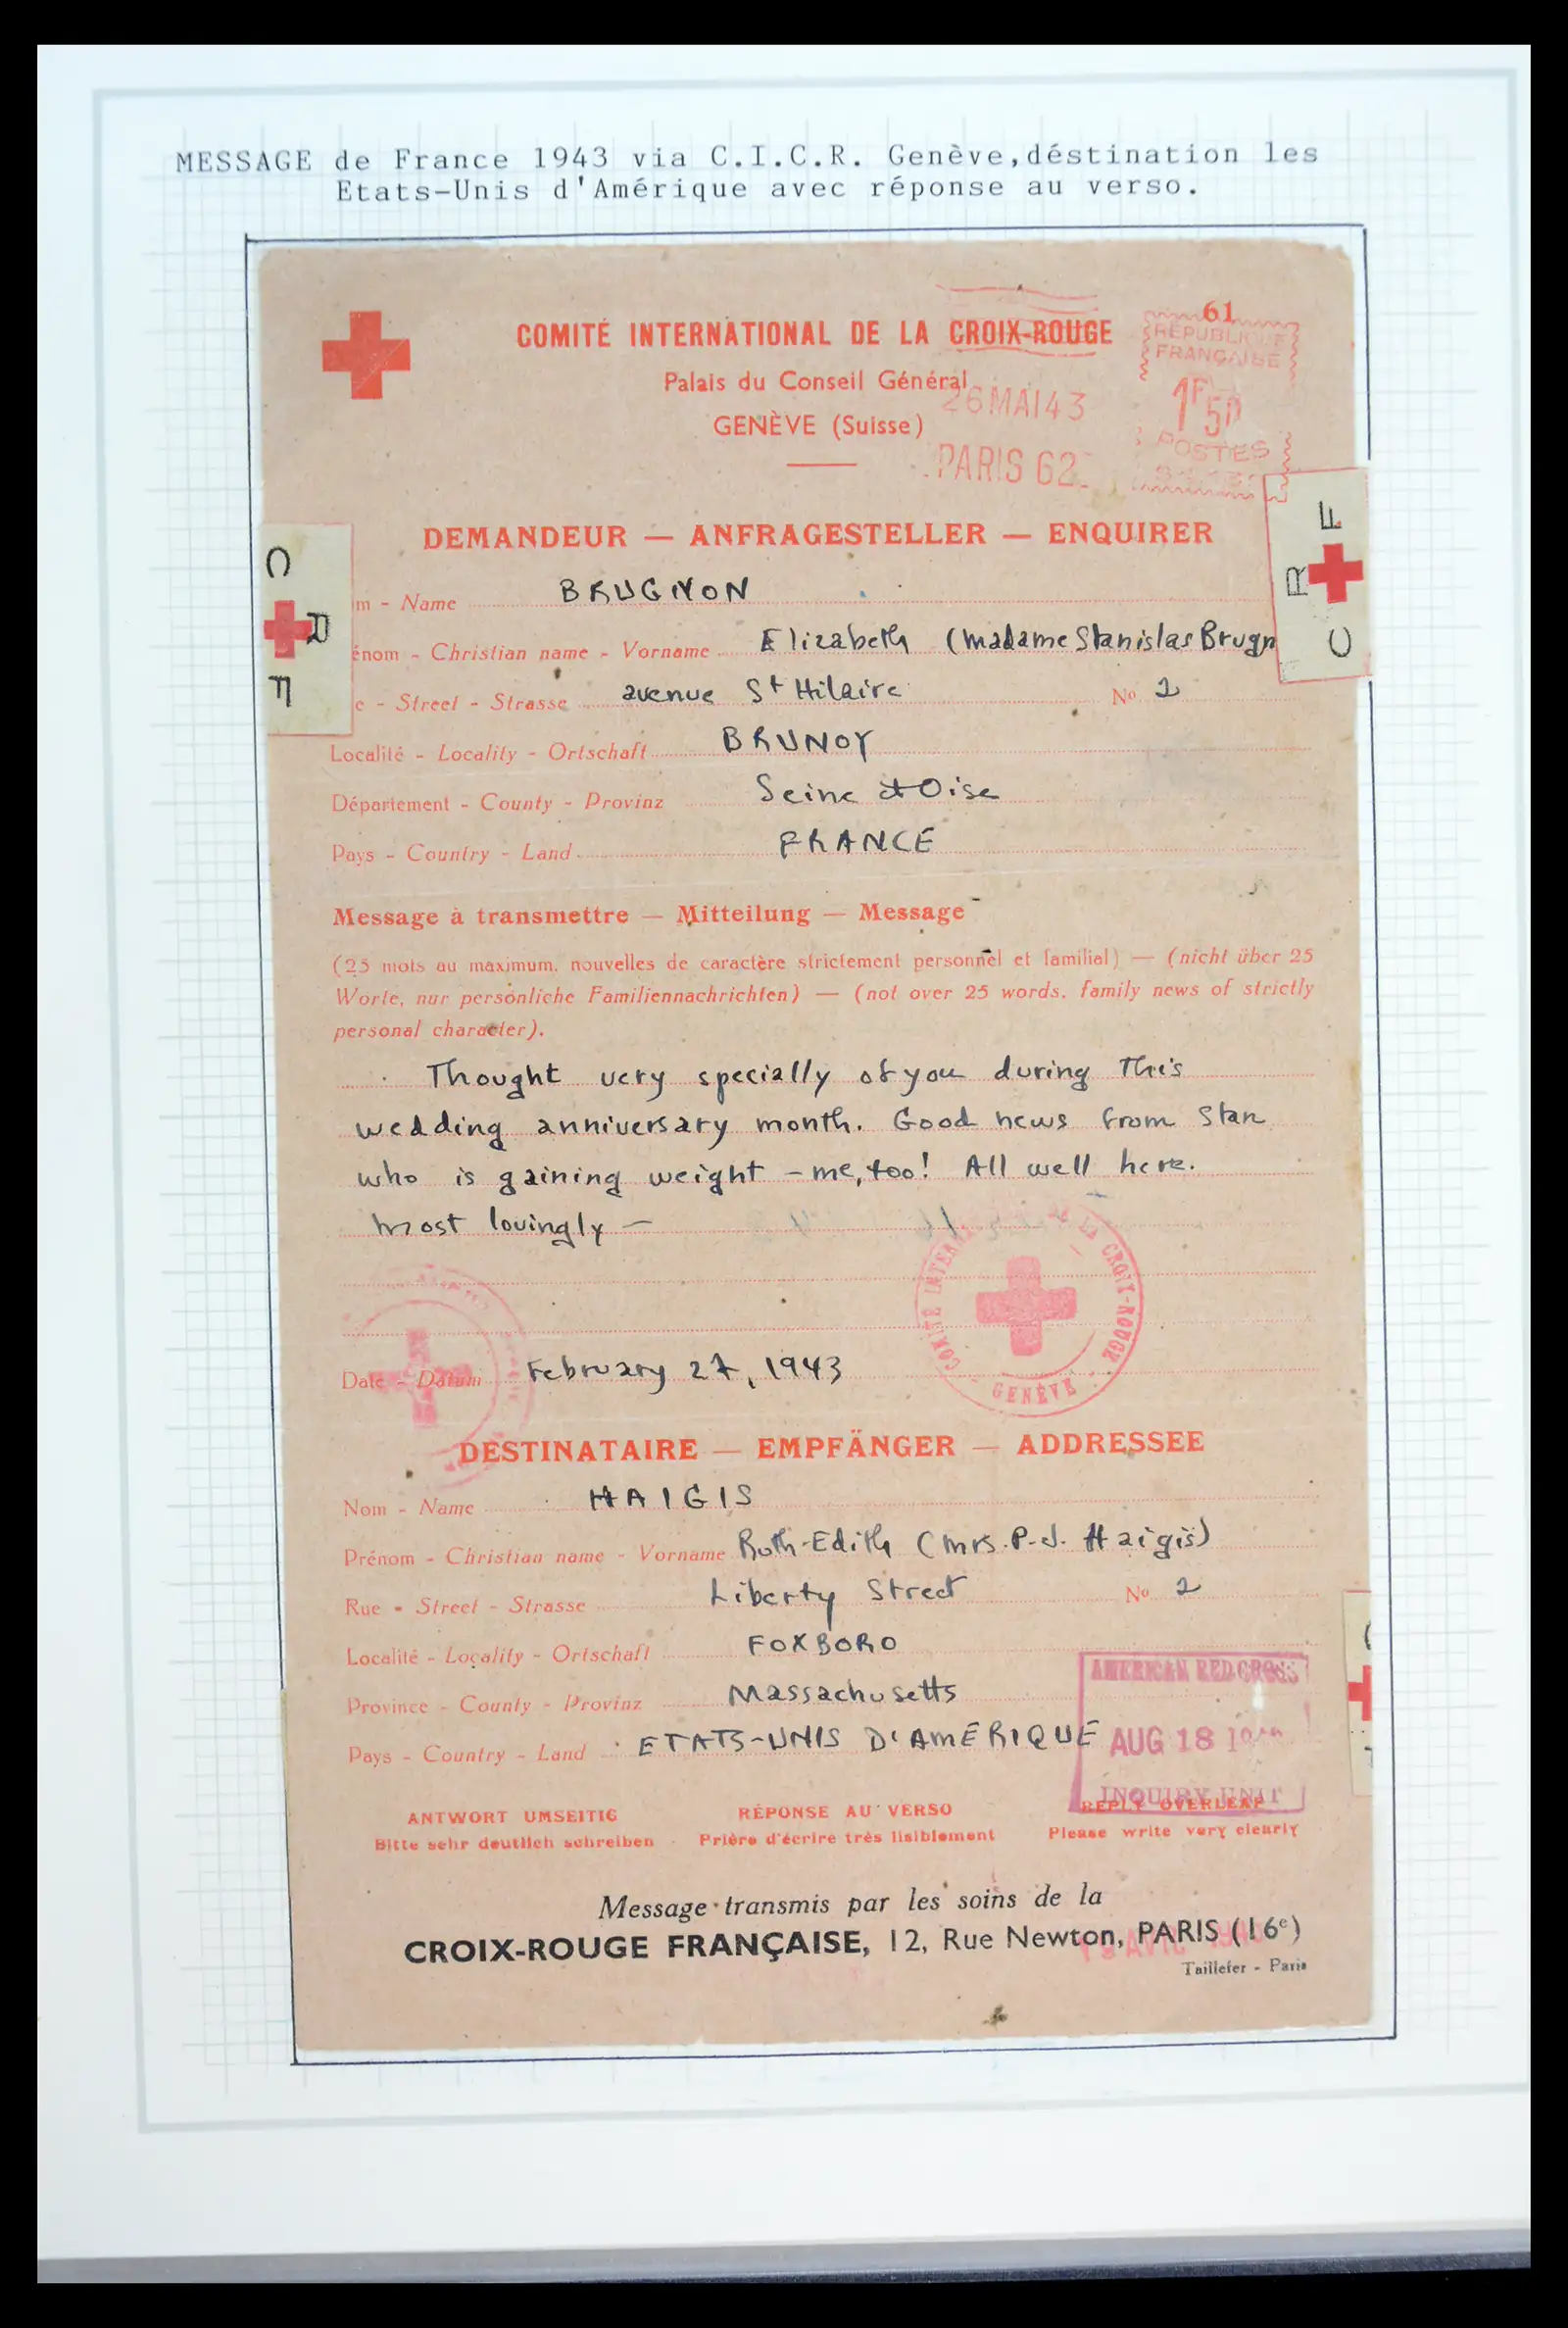 MESSAGE de France 1943 via C.I.C.R. Genève,déstination les
Etats-Unis d'Amérique avec réponse au verso.
COMITÉ INTERNATIONAL DE LA CROIX-ROUGE
Palais du Conseil Général
GENÈVE (Suisse)
61
RÉPUBLIQUE
FRANÇAISE
1F50
POSTES
26 MAI 43
PARIS 62
DEMANDEUR — ANFRAGESTELLER — ENQUIRER
C R F
C R F
m - Name BRUGNON
énom - Christian name - Vorname Elizabeth (Madame Stanislas Brugn
e - Street - Strasse avenue St Hilaire No 2
Localité - Locality - Ortschaft BRUNOY
Département - County - Provinz Seine et Oise
Pays - Country - Land FRANCE
Message à transmettre — Mitteilung — Message
(25 mots au maximum, nouvelles de caractère strictement personnel et familial) — (nicht über 25
Worte, nur persönliche Familiennachrichten) — (not over 25 words, family news of strictly
personal character).
Thought very specially of you during this
wedding anniversary month. Good news from Stan
who is gaining weight - me, too! All well here.
Most lovingly —
COMITÉ INTERNATIONAL DE LA CROIX-ROUGE
GENÈVE
Date - Datum February 27, 1943
DESTINATAIRE — EMPFÄNGER — ADDRESSEE
Nom - Name HAIGIS
Prénom - Christian name - Vorname Ruth-Edith (Mrs. P-J. Haigis)
Rue - Street - Strasse Liberty Street No 2
Localité - Locality - Ortschaft FOXBORO
Province - County - Provinz Massachusetts
Pays - Country - Land ETATS-UNIS D'AMÉRIQUE
AMERICAN RED CROSS
AUG 18
INQUIRY UNIT
ANTWORT UMSEITIG RÉPONSE AU VERSO REPLY OVERLEAF
Bitte sehr deutlich schreiben Prière d'écrire très lisiblement Please write very clearly
Message transmis par les soins de la
CROIX-ROUGE FRANÇAISE, 12, Rue Newton, PARIS (16e)
Taillefer - Paris